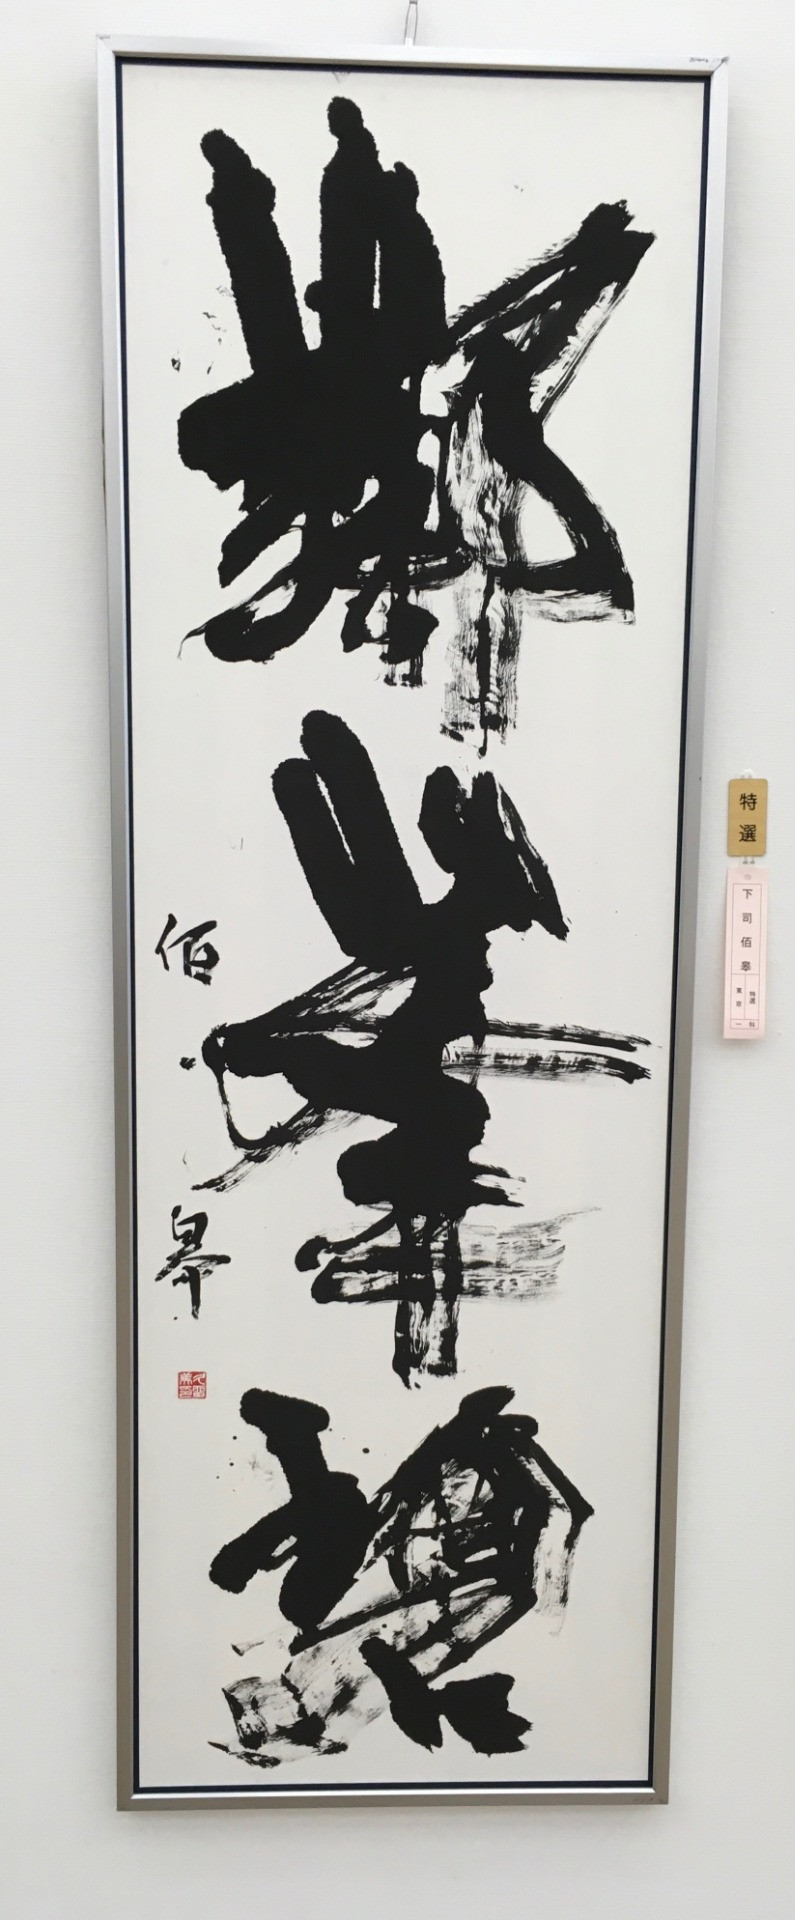 數峯碧
佰皐
特選
下司佰皐
特選
東京
一科